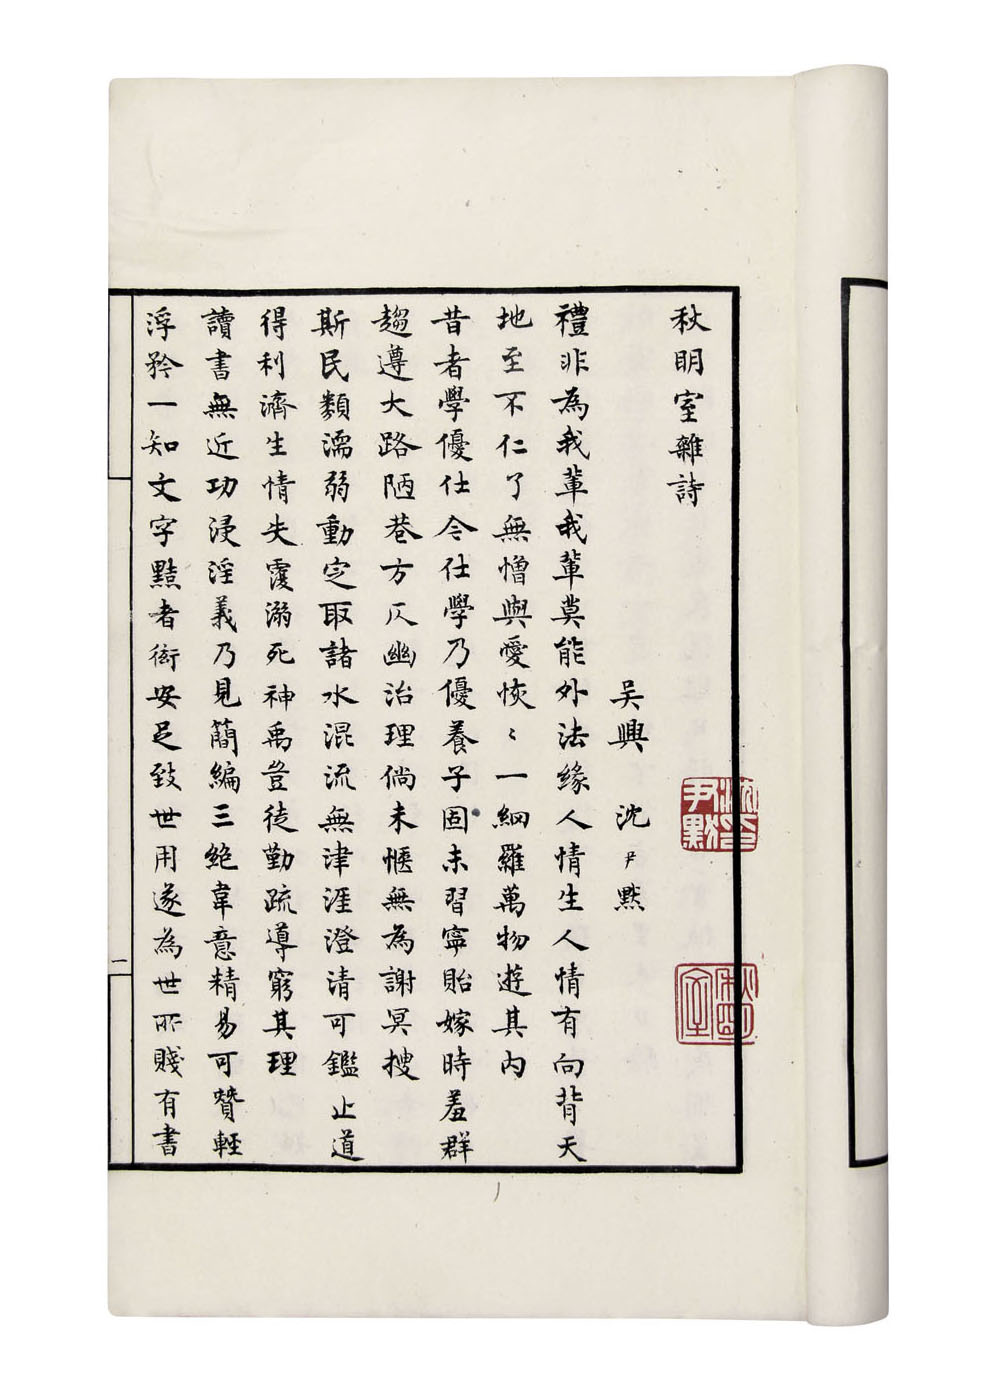 秋明室雜詩
吴興 沈尹默
禮非為我輩我輩莫能外法緣人情生人情有向背天
地至不仁了無憎與愛恢〻一網羅萬物遊其内
昔者學優仕今仕學乃優養子固未習寧貽嫁時羞群
趨遵大路陋巷方仄幽治理倘未愜無為謝冥搜
斯民類濡弱動定取諸水混流無津涯澄清可鑑止道
得利濟生情失覆溺死神禹豈徒勤疏導窮其理
讀書無近功浸淫義乃見簡編三絶韋意精易可贊輕
浮矜一知文字黠者衒安足致世用遂為世所賤有書
一
沈印尹默
秋明室